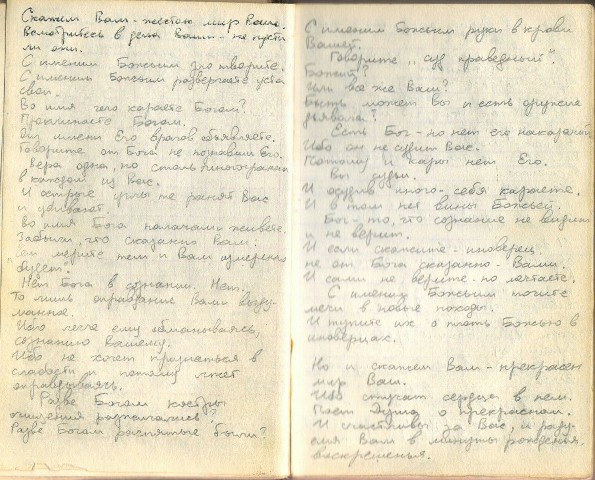 Скажем Вам - жесток мир Ваш.
Всмотритесь в дела Ваши - не пусты
ли они.
С именем Божьим зло творите.
С именем Божьим разверзаете уста
свои.
Во имя чего караете Богом?
Проклинаете Богом.
От имени Его врагов объявляете.
Говорите от Бога не познавши Его.
Вера одна, но столь многогранна
в каждом из Вас.
И острые углы те ранят Вас
и убивают.
Во имя Бога палачами живете.
Забыли, что сказано Вам:
"чем мерите тем и Вам отмерено
будет".
Нет Бога в сознании. Нет.
То лишь оправдание Вами выду-
манное.
Ибо легче ему обманываясь,
сознанию Вашему.
Ибо не хочет признаться в
слабости и потому лжет
оправдываясь.
Разве Богом костры
очищения разжигались?
Разве Богом распятые были?
С именем Божьим руки в крови
Вашей.
Говорите "суд праведный".
Божий?
Или все же Ваш?
Быть может вы и есть оружие
дьявола?
Есть Бог - но нет его наказания
Ибо он не судит Вас.
Потому и кары нет Его.
Вы судьи.
И осудив иного - себя караете.
И в том нет вины Божьей.
Бог - то, что сознание не видит
и не верит.
И если скажите - иноверец
не от Бога сказано - Вами.
И сами не верите - но мечтаете.
С именем Божьим точите
мечи в новые походы.
И тупите их о плоть Божью в
иноверцах.
Но и скажем Вам - прекрасен
мир Ваш.
Ибо стучат сердца в нем.
Поет Душа о прекрасном.
И счастливы за Вас, и раду-
емся Вам в минуты рождения,
воскрешенья.